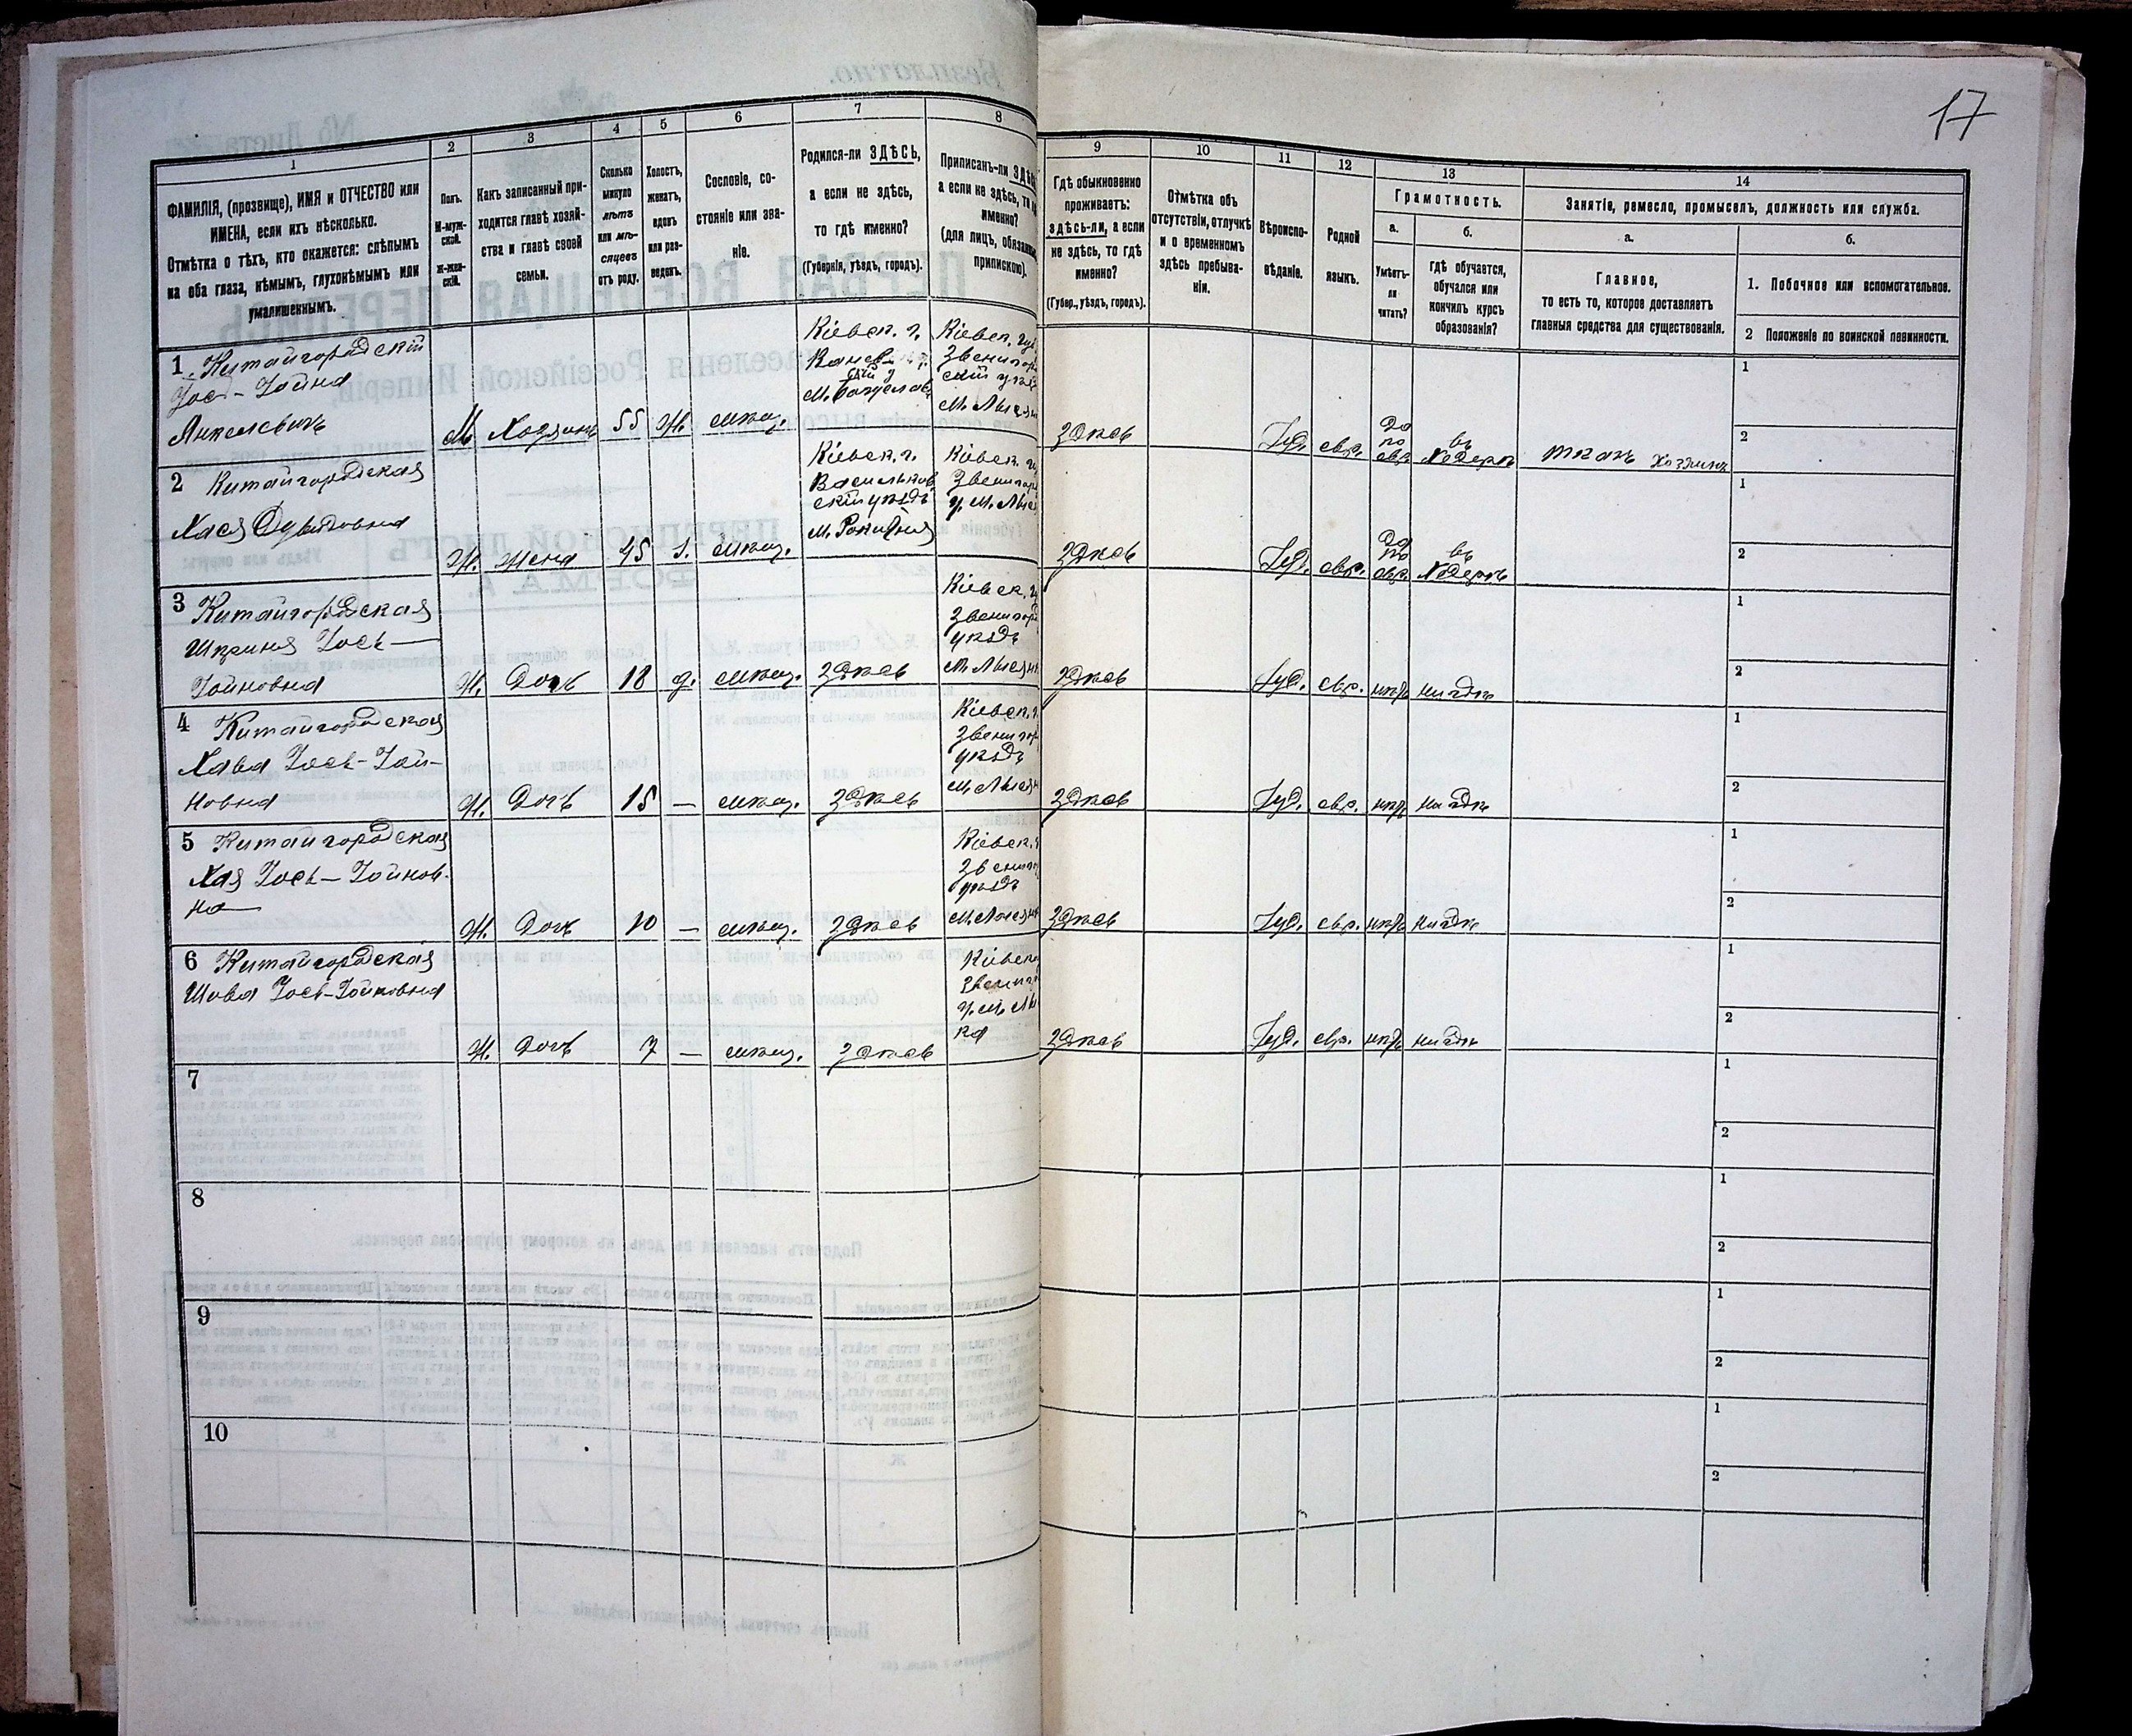 17
1
ФАМИЛІЯ, (прозвище), ИМЯ и ОТЧЕСТВО или
ИМЕНА, если ихъ нѣсколько.
Отмѣтка о тѣхъ, кто окажется: слѣпымъ
на оба глаза, нѣмымъ, глухонѣмымъ или
умалишеннымъ.
2
Полъ.
М-муж-
ской.
Ж-жен-
скій.
3
Какъ записанный при-
ходится главѣ хозяй-
ства и главѣ своей
семьи.
4
Сколько
минуло
лѣтъ
или мѣ-
сяцевъ
отъ роду.
5
Холостъ,
женатъ,
вдовъ
или раз-
веденъ.
6
Сословіе, со-
стояніе или зва-
ніе.
7
Родился-ли ЗДѢСЬ,
а если не здѣсь,
то гдѣ именно?
(Губернія, уѣздъ, городъ).
8
Приписанъ-ли ЗДѢС
а если не здѣсь, то г
именно?
(для лицъ, обязанн
припискою).
9
Гдѣ обыкновенно
проживаетъ:
здѣсь-ли, а если
не здѣсь, то гдѣ
именно?
(Губер., уѣздъ, городъ).
10
Отмѣтка объ
отсутствіи, отлучкѣ
и о временномъ
здѣсь пребыва-
ніи.
11
Вѣроиспо-
вѣданіе.
12
Родной
языкъ.
13
Грамотность.
а.
Умѣетъ-
ли
читать?
б.
гдѣ обучается,
обучался или
кончилъ курсъ
образованія?
14
Занятіе, ремесло, промыселъ, должность или служба.
а.
Главное,
то есть то, которое доставляетъ
главныя средства для существованія.
б.
1. Побочное или вспомогательное.
2 Положеніе по воинской повинности.
1. Китайгородскій
Іось-Іойна
Янкелевичъ
М
Хозяинъ
55
Ж.
мѣщ.
Кіевск. г.
Канев-
скій у
М. Богуслав
Кіевск. гу
Звенигор
скій уѣз
М. Лысян
здѣсь
Іуд.
евр.
Да
по
евр.
въ
Хедерѣ
ткачъ хозяинъ
1
2
2 Китайгородская
Хася Дувидовна
Ж.
жена
45
з.
мѣщ.
Кіевск. г.
Васильков
скій уѣздъ
М. Рокитня
Кіевск. гу
Звенигор
у. М. Лыся
здѣсь
Іуд.
евр.
Да
по
евр.
въ
Хедерѣ
1
2
3 Китайгородская
Шприня Іось-
Іойновна
Ж.
Дочь
18
д.
мѣщ.
здѣсь
Кіевск. г
Звенигор
уѣздъ
М. Лысян
здѣсь
Іуд.
евр.
нѣтъ
нигдѣ
1
2
4 Китайгородская
Хава Іось-Іой-
новна
Ж.
Дочь
15
—
мѣщ.
здѣсь
Кіевск. г
Звенигор
уѣздъ
М. Лысян
здѣсь
Іуд.
евр.
нѣтъ
нигдѣ
1
2
5 Китайгородская
Хая Іось-Іойнов-
на
Ж.
Дочь
10
—
мѣщ.
здѣсь
Кіевск. г
Звениго
уѣздъ
М. Лысян
здѣсь
Іуд.
евр.
нѣтъ
нигдѣ
1
2
6 Китайгородская
Шова Іось-Іойновна
Ж.
Дочь
7
—
мѣщ.
здѣсь
Кіевск
Звениг
у. М. Лы
ка
здѣсь
Іуд.
евр.
нѣтъ
нигдѣ
1
2
7
1
2
8
1
2
9
1
2
10
1
2